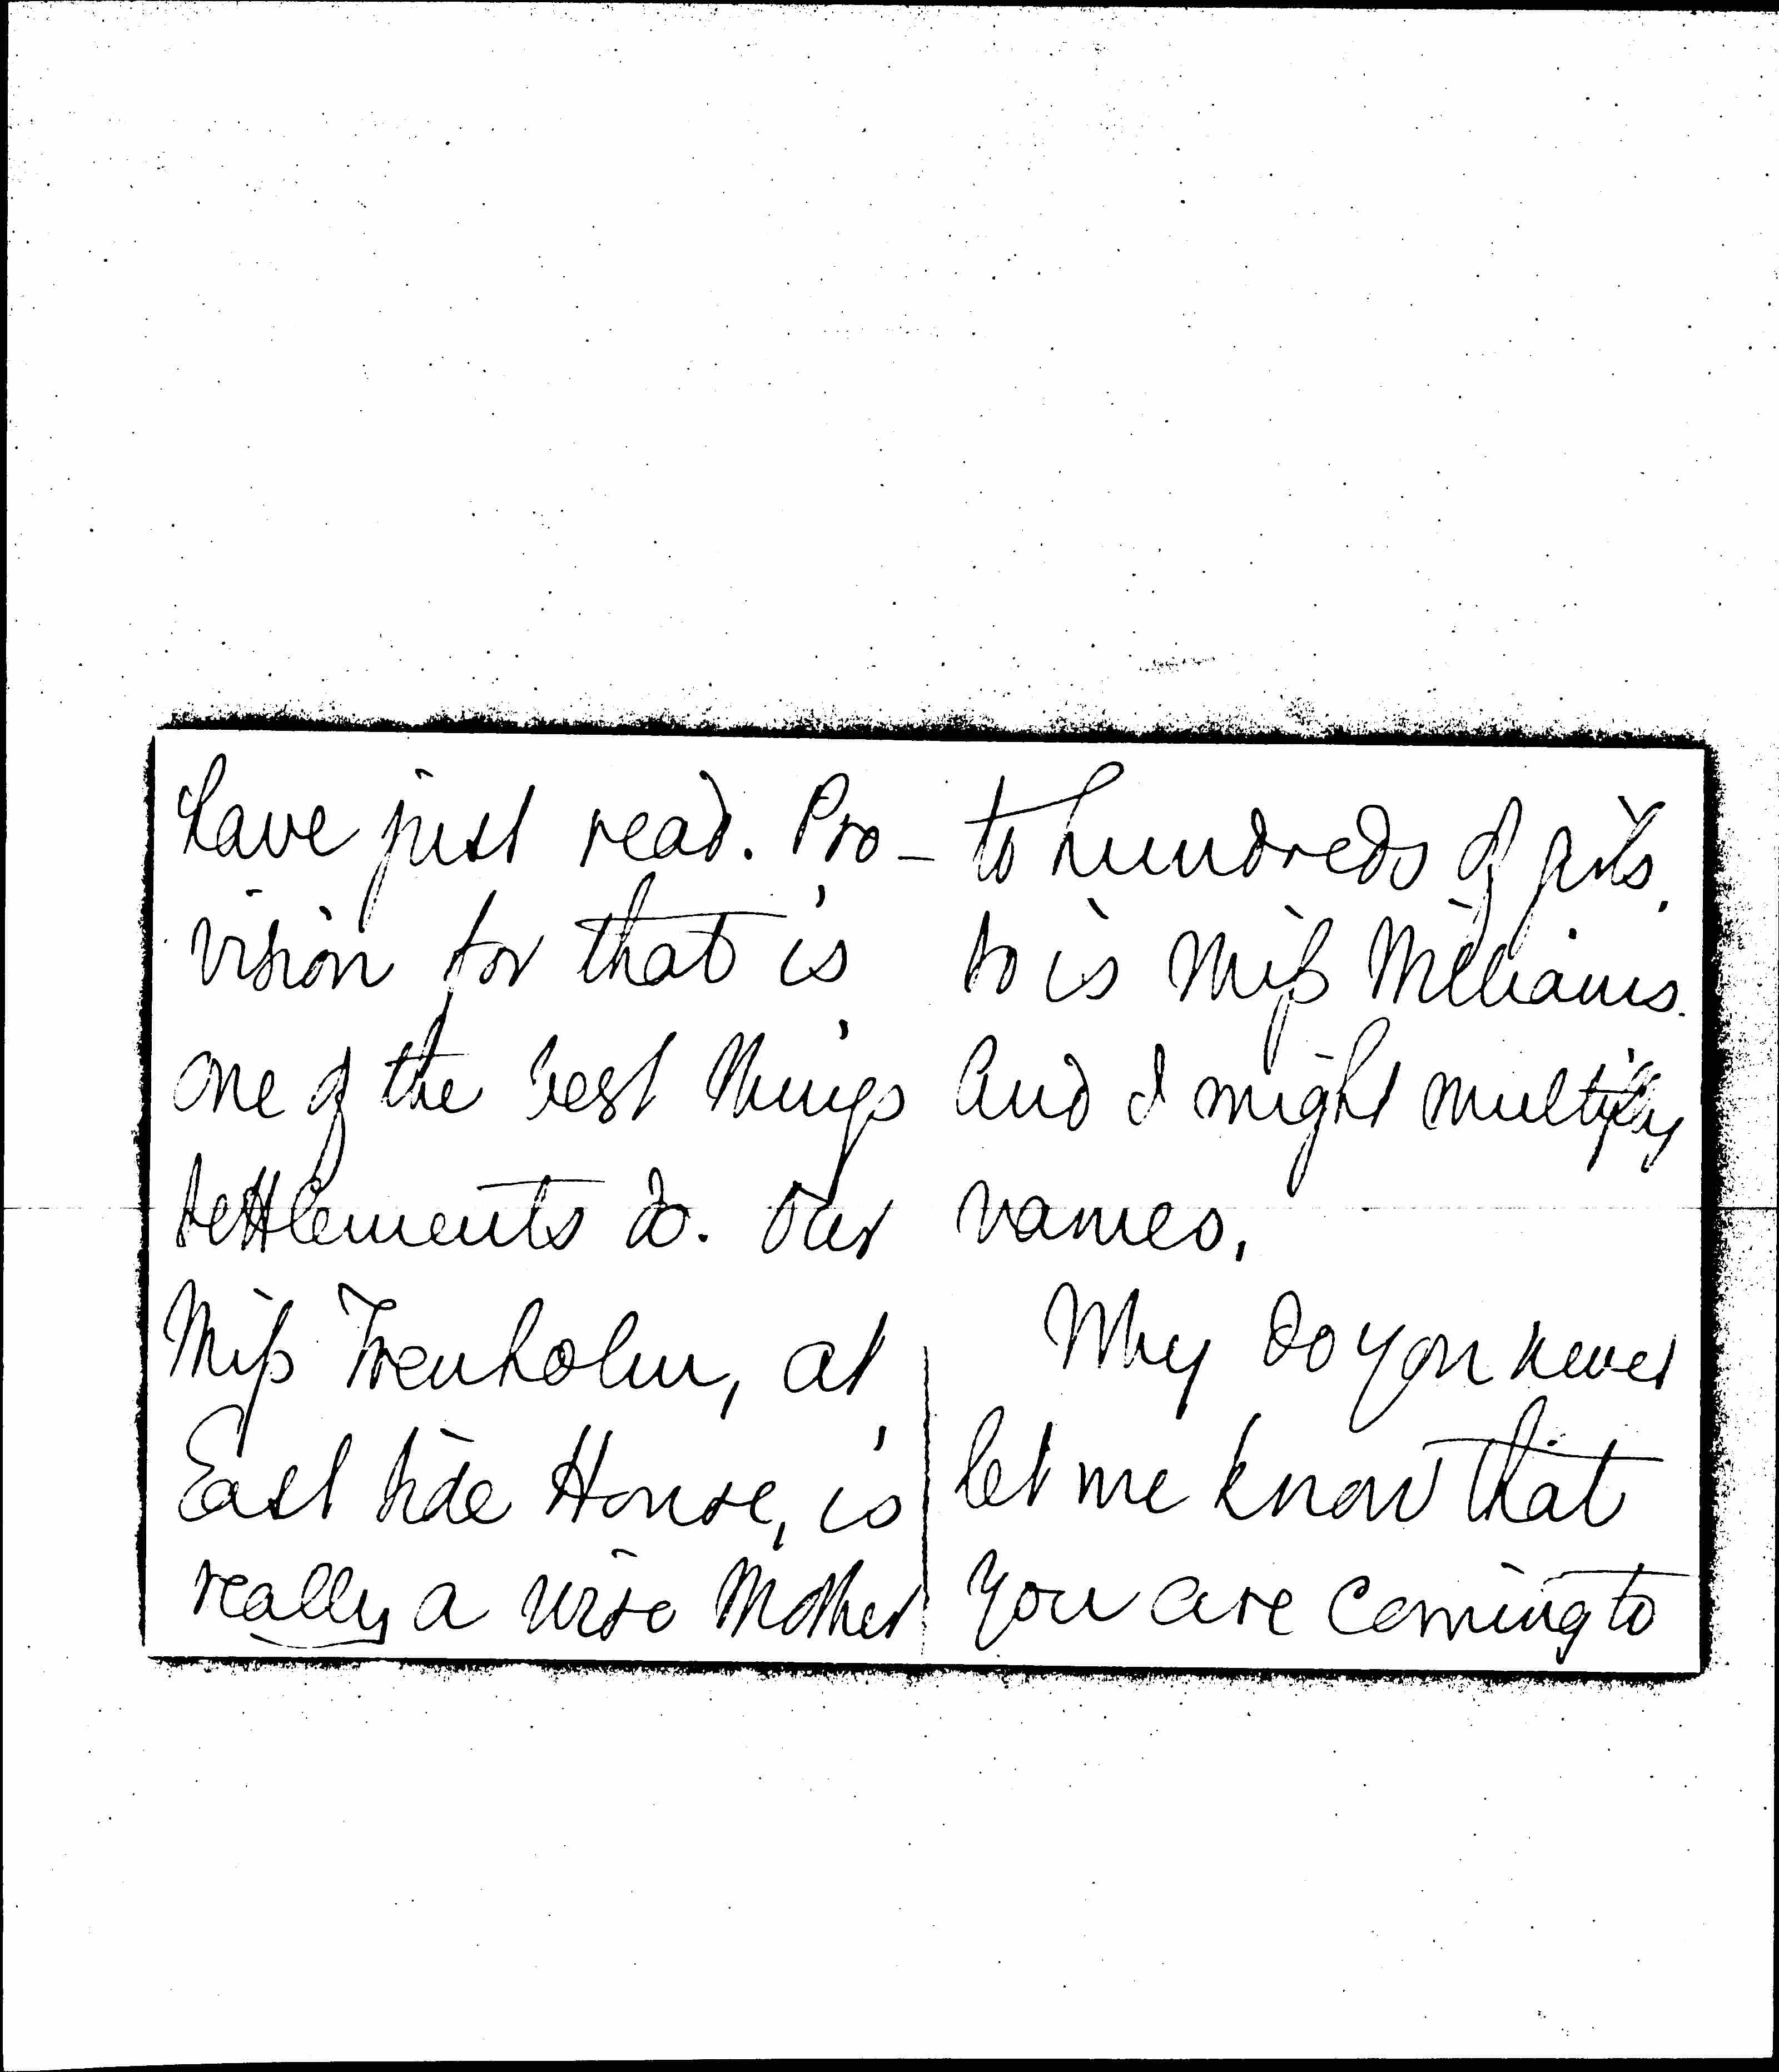 have just read. Pro-
vision for that is
one of the best things
settlements do. Our
Miss Trenholm, at
East Side House, is
really a wise Mother
to hundreds of girls.
So is Miss Williams.
And I might multiply
names.
Why do you never
let me know that
you are coming to